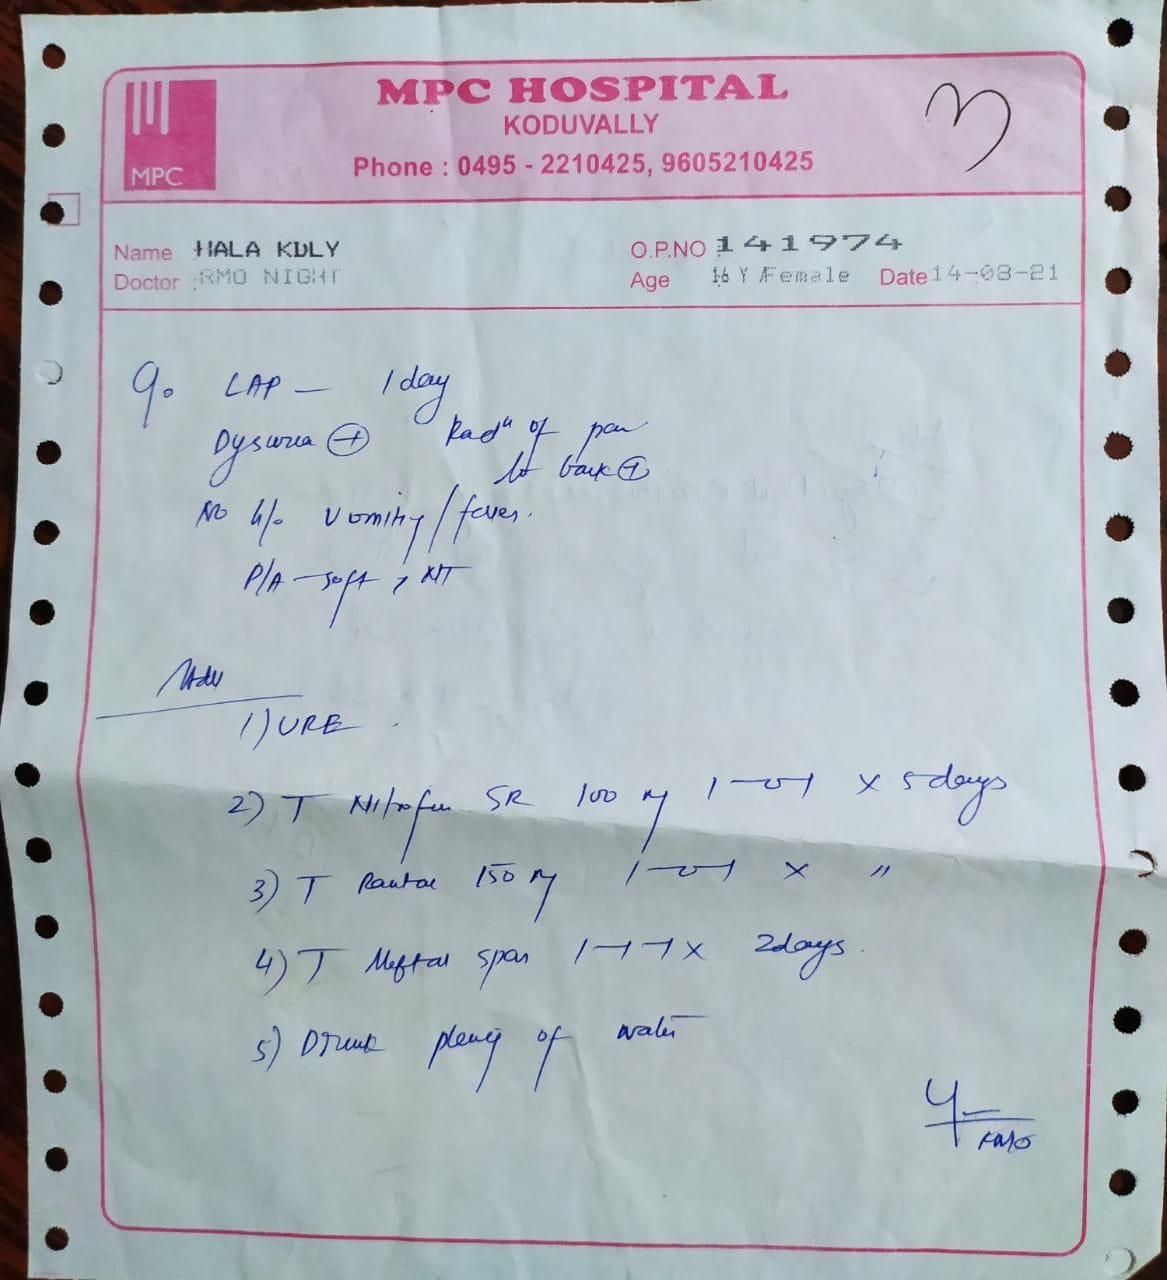 MPC HOSPITAL
KODUVALLY
Phone : 0495 - 2210425, 9605210425
3
MPC
Name HALA KDLY O.P.NO 141974
Doctor :RMO NIGHT Age 16 Y /Female Date 14-08-21
LAP — 1 day
Dysuria (+) Radn of pain
to back (+)
No h/o vomiting / fever.
P/A — soft, NT
Adv
1) URE
2) T Nitrofur SR 100 mg 1—0—1 x 5 days
3) T Rantac 150 mg 1—0—1 x "
4) T Meftal spas 1—1—1 x 2 days.
5) Drink plenty of water
RMO